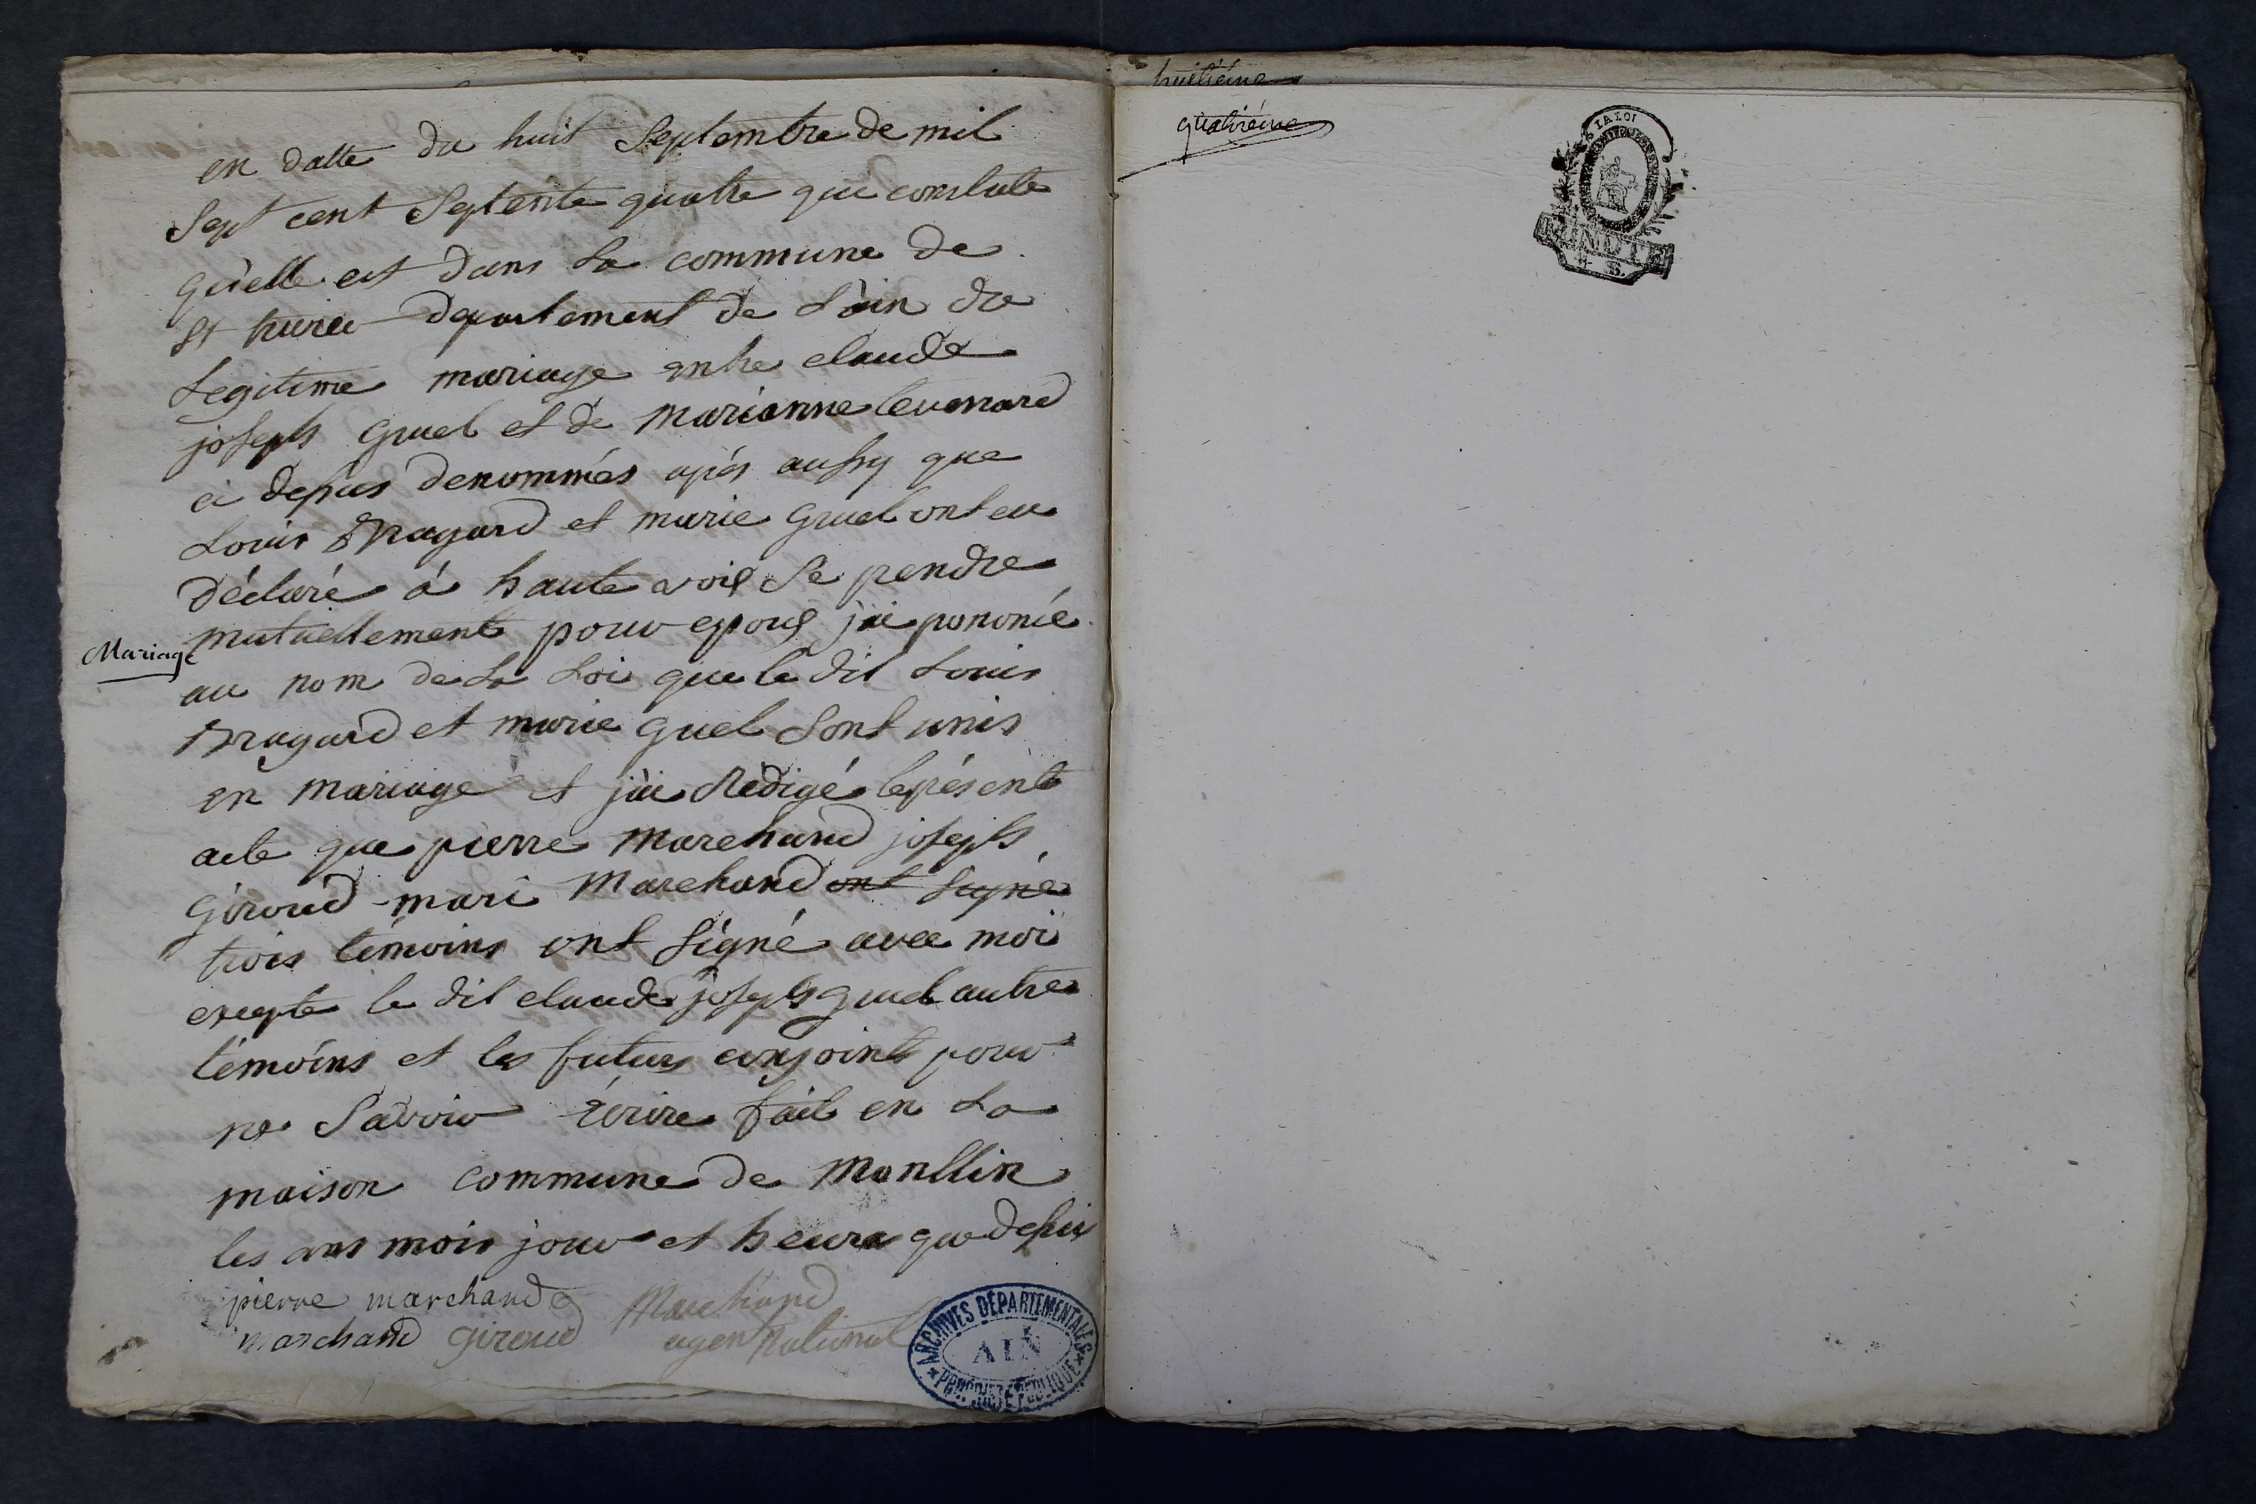 en datte du huit Septembre de mil
Sept cent Septente quatre que constate
qu'elle est dans La commune de
St hurie departement de L'ain de
Legitime mariage entre claude
joseph gruel et de marianne levenard
ci depus denommés après aussy que
Louis Bragard et marie gruel ont eu
déclaré à haute voix Se pendre
mutuellement pour epoux j'ai pononcé
Mariage
au nom de La Loi que le dit Louis
Bragard et marie guel Sont unis
en mariage et j'ai Rédigé le présent
acte que pierre marchand joseph
Giroud mari marchand ont Signé
trois témoins ont Signé avec moi
excepte le dit claude joseph gruel autre
témoins et les futurs conjoints pour
ne Savoir écrire fait en La
maison commune de manllin
les ans mois jour et heure que depus
pierre marchand
Marchand
marchand giroud
agen national
ARCHIVES DÉPARTEMENTALES
AIN
PROPRIÉTÉ PUBLIQUE
huitiéme
quatriéme
LA LOI